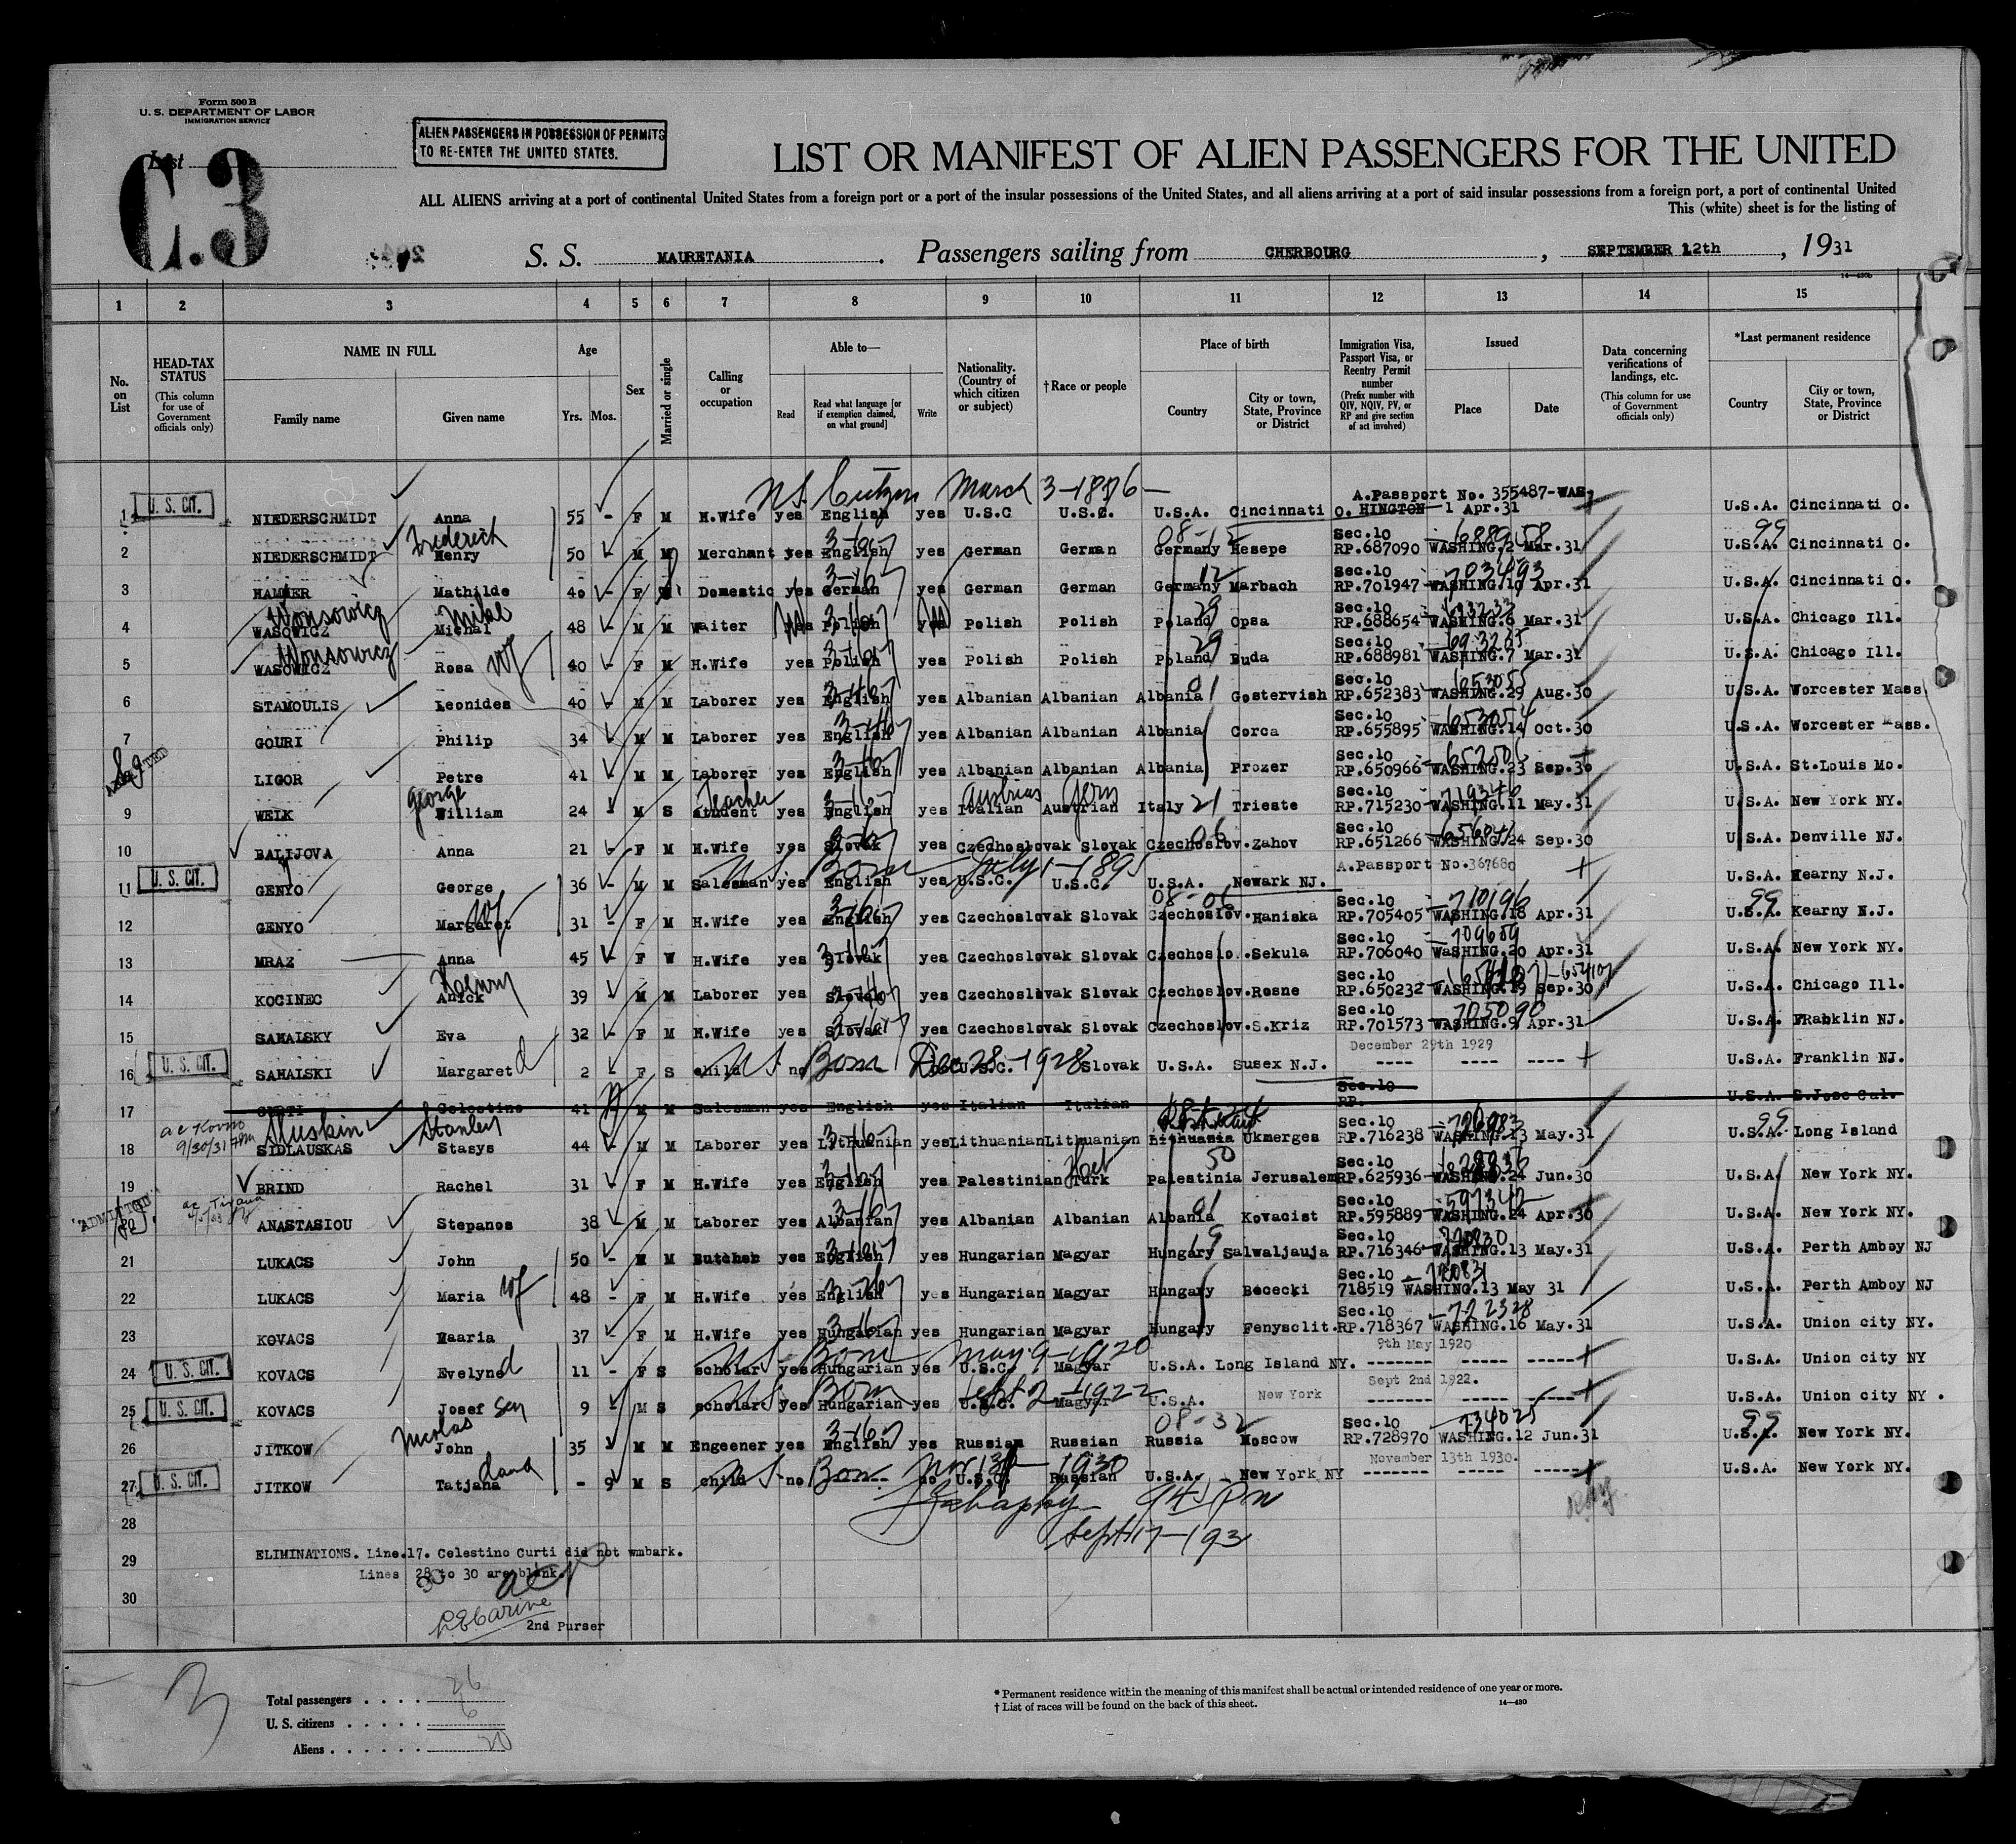 Form 500 B
U. S. DEPARTMENT OF LABOR
IMMIGRATION SERVICE
List
C.3
ALIEN PASSENGERS IN POSSESSION OF PERMITS
TO RE-ENTER THE UNITED STATES.
LIST OR MANIFEST OF ALIEN PASSENGERS FOR THE UNITED
ALL ALIENS arriving at a port of continental United States from a foreign port or a port of the insular possessions of the United States, and all aliens arriving at a port of said insular possessions from a foreign port, a port of continental United
This (white) sheet is for the listing of
S. S. MAURETANIA. Passengers sailing from CHERBOURG, SEPTEMBER 12th, 1931
1 2 3 4 5 6 7 8 9 10 11 12 13 14 15
No. on List
HEAD-TAX STATUS (This column for use of Government officials only)
NAME IN FULL Family name Given name
Age Yrs. Mos.
Sex
Married or single
Calling or occupation
Able to— Read Read what language [or if exemption claimed, on what ground] Write
Nationality. (Country of which citizen or subject)
† Race or people
Place of birth Country City or town, State, Province or District
Immigration Visa, Passport Visa, or Reentry Permit number (Prefix number with QIV, NQIV, PV, or RP and give section of act involved)
Issued Place Date
Data concerning verifications of landings, etc. (This column for use of Government officials only)
*Last permanent residence Country City or town, State, Province or District
US. Citizen March 3-1876
1 U. S. CIT. NIEDERSCHMIDT Anna 55 - F M H.Wife yes English yes U.S.C U.S.C. U.S.A. Cincinnati O. A.Passport No. 355487-WASHINGTON 1 Apr.31 U.S.A. Cincinnati O.
2 NIEDERSCHMIDT Frederick Henry 50 - M M Merchant yes English yes German German Germany Hesepe Sec.10 RP.687090 WASHING.2 Mar.31 U.S.A. Cincinnati O.
3 HAMMER Mathilde 40 - F Domestic yes German yes German German Germany Marbach Sec.10 RP.701947 WASHING.10 Apr.31 U.S.A. Cincinnati O.
4 Wonsowicz WASOWICZ Mike Michal 48 - M M Waiter Polish Polish Polish Poland Opsa Sec.10 RP.688654 WASHING.6 Mar.31 U.S.A. Chicago Ill.
5 Wonsowicz WASOWICZ Rosa wf 40 - F M H.Wife yes Polish yes Polish Polish Poland Buda Sec.10 RP.688981 WASHING.7 Mar.31 U.S.A. Chicago Ill.
6 STAMOULIS Leonides 40 - M M Laborer yes English yes Albanian Albanian Albania Gostervish Sec.10 RP.652383 WASHING.29 Aug.30 U.S.A. Worcester Mass.
7 GOURI Philip 34 M M Laborer yes English yes Albanian Albanian Albania Corca Sec.10 RP.655895 WASHING.14 Oct.30 U.S.A. Worcester Mass.
LIGOR Petre 41 M M Laborer yes English yes Albanian Albanian Albania Prozer Sec.10 RP.650966 WASHING.23 Sep.30 U.S.A. St.Louis Mo.
9 WEIK George William 24 - M S Teacher student yes English yes Austrian Italian Germ Austrian Italy 21 Trieste Sec.10 RP.715230 WASHING.11 May.31 U.S.A. New York NY.
10 BALIJOVA Anna 21 - F M H.Wife yes Slovak yes Czechoslovak Slovak Czechoslov. Zahov Sec.10 RP.651266 WASHING.24 Sep.30 U.S.A. Denville NJ.
11 U. S. CIT. GENYO George 36 - M M Salesman yes English yes US Born July 1-1895 U.S.C. U.S.C. U.S.A. Newark NJ. A.Passport No.367680 U.S.A. Kearny N.J.
12 GENYO Margaret wf 31 - F M H.Wife yes English yes Czechoslovak Slovak Czechoslov. Haniska Sec.10 RP.705405 WASHING.18 Apr.31 U.S.A. Kearny N.J.
13 MRAZ Anna 45 F W H.Wife yes Slovak yes Czechoslovak Slovak Czechoslo..Sekula Sec.10 RP.706040 WASHING.20 Apr.31 U.S.A. New York NY.
14 KOCINEC Anick 39 M M Laborer yes Slovak yes Czechoslovak Slovak Czechoslov.Rosne Sec.10 RP.650232 WASHING.19 Sep.30 U.S.A. Chicago Ill.
15 SAMAISKY Eva 32 - F M H.Wife yes Slovak yes Czechoslovak Slovak Czechoslov.S.Kriz Sec.10 RP.701573 WASHING.9 Apr.31 U.S.A. Franklin NJ.
16 U. S. CIT. SAMAISKI Margaret d 2 F S child no US Born Dec 28-1928 U.S.C. Slovak U.S.A. Susex N.J. December 29th 1929 ---- ---- ---- U.S.A. Franklin NJ.
17 CURTI Celestino 41 M M Salesman yes English yes Italian Italian Sec.10 RP. U.S.A. S.Jose Cal.
18 SIDLAUSKAS Stanley Stasys 44 M M Laborer yes Lithuanian yes Lithuanian Lithuanian Lithuania Ukmerges Sec.10 RP.716238 WASHING.13 May.31 U.S.A. Long Island
19 BRIND Rachel 31 F M H.Wife yes English yes Palestinian Turk Palestinia Jerusalem Sec.10 RP.625936 WASHING.24 Jun.30 U.S.A. New York NY.
20 ADMITTED ANASTASIOU Stepanos 38 M M Laborer yes Albanian yes Albanian Albanian Albania Kovacist Sec.10 RP.595889 WASHING.24 Apr.30 U.S.A. New York NY.
21 LUKACS John 50 - M M Butcher yes English yes Hungarian Magyar Hungary Salwaljauja Sec.10 RP.716346 WASHING.13 May.31 U.S.A. Perth Amboy NJ
22 LUKACS Maria wf 48 - F M H.Wife yes English yes Hungarian Magyar Hungary Bececki Sec.10 718519 WASHING.13 May 31 U.S.A. Perth Amboy NJ
23 KOVACS Maaria 37 - F M H.Wife yes Hungarian yes Hungarian Magyar Hungary Fenysclit. Sec.10 RP.718367 WASHING.16 May.31 U.S.A. Union city NY.
24 U. S. CIT. KOVACS Evelyne d 11 - F S scholar yes Hungarian yes US Born May 9-1920 U.S.C. Magyar U.S.A. Long Island NY. 9th May 1920 ------- ----- ----- U.S.A. Union city NY
25 U. S. CIT. KOVACS Josef son 9 M S scholar yes Hungarian yes US Born Sept 2-1922 U.S.C. Magyar U.S.A. New York Sept 2nd 1922. ------- ----- ----- U.S.A. Union city NY .
26 JITKOW Nicolas John 35 M M Engeener yes English yes Russian Russian Russia 08-32 Moscow Sec.10 RP.728970 WASHING.12 Jun.31 734025 U.S.A. New York NY.
27 U. S. CIT. JITKOW Tatjana - 9 M S child no US Born no Nov 13-1930 U.S.C. Russian U.S.A. New York NY November 13th 1930. ------- ----- ----- U.S.A. New York NY.
28
Sept 17-193
29 ELIMINATIONS. Line.17. Celestino Curti did not wmbark.
Lines 28 to 30 are blank.
30
2nd Purser
3
Total passengers . . . . 26
U. S. citizens . . . . . 6
Aliens . . . . . . 20
* Permanent residence within the meaning of this manifest shall be actual or intended residence of one year or more.
† List of races will be found on the back of this sheet.
14—430